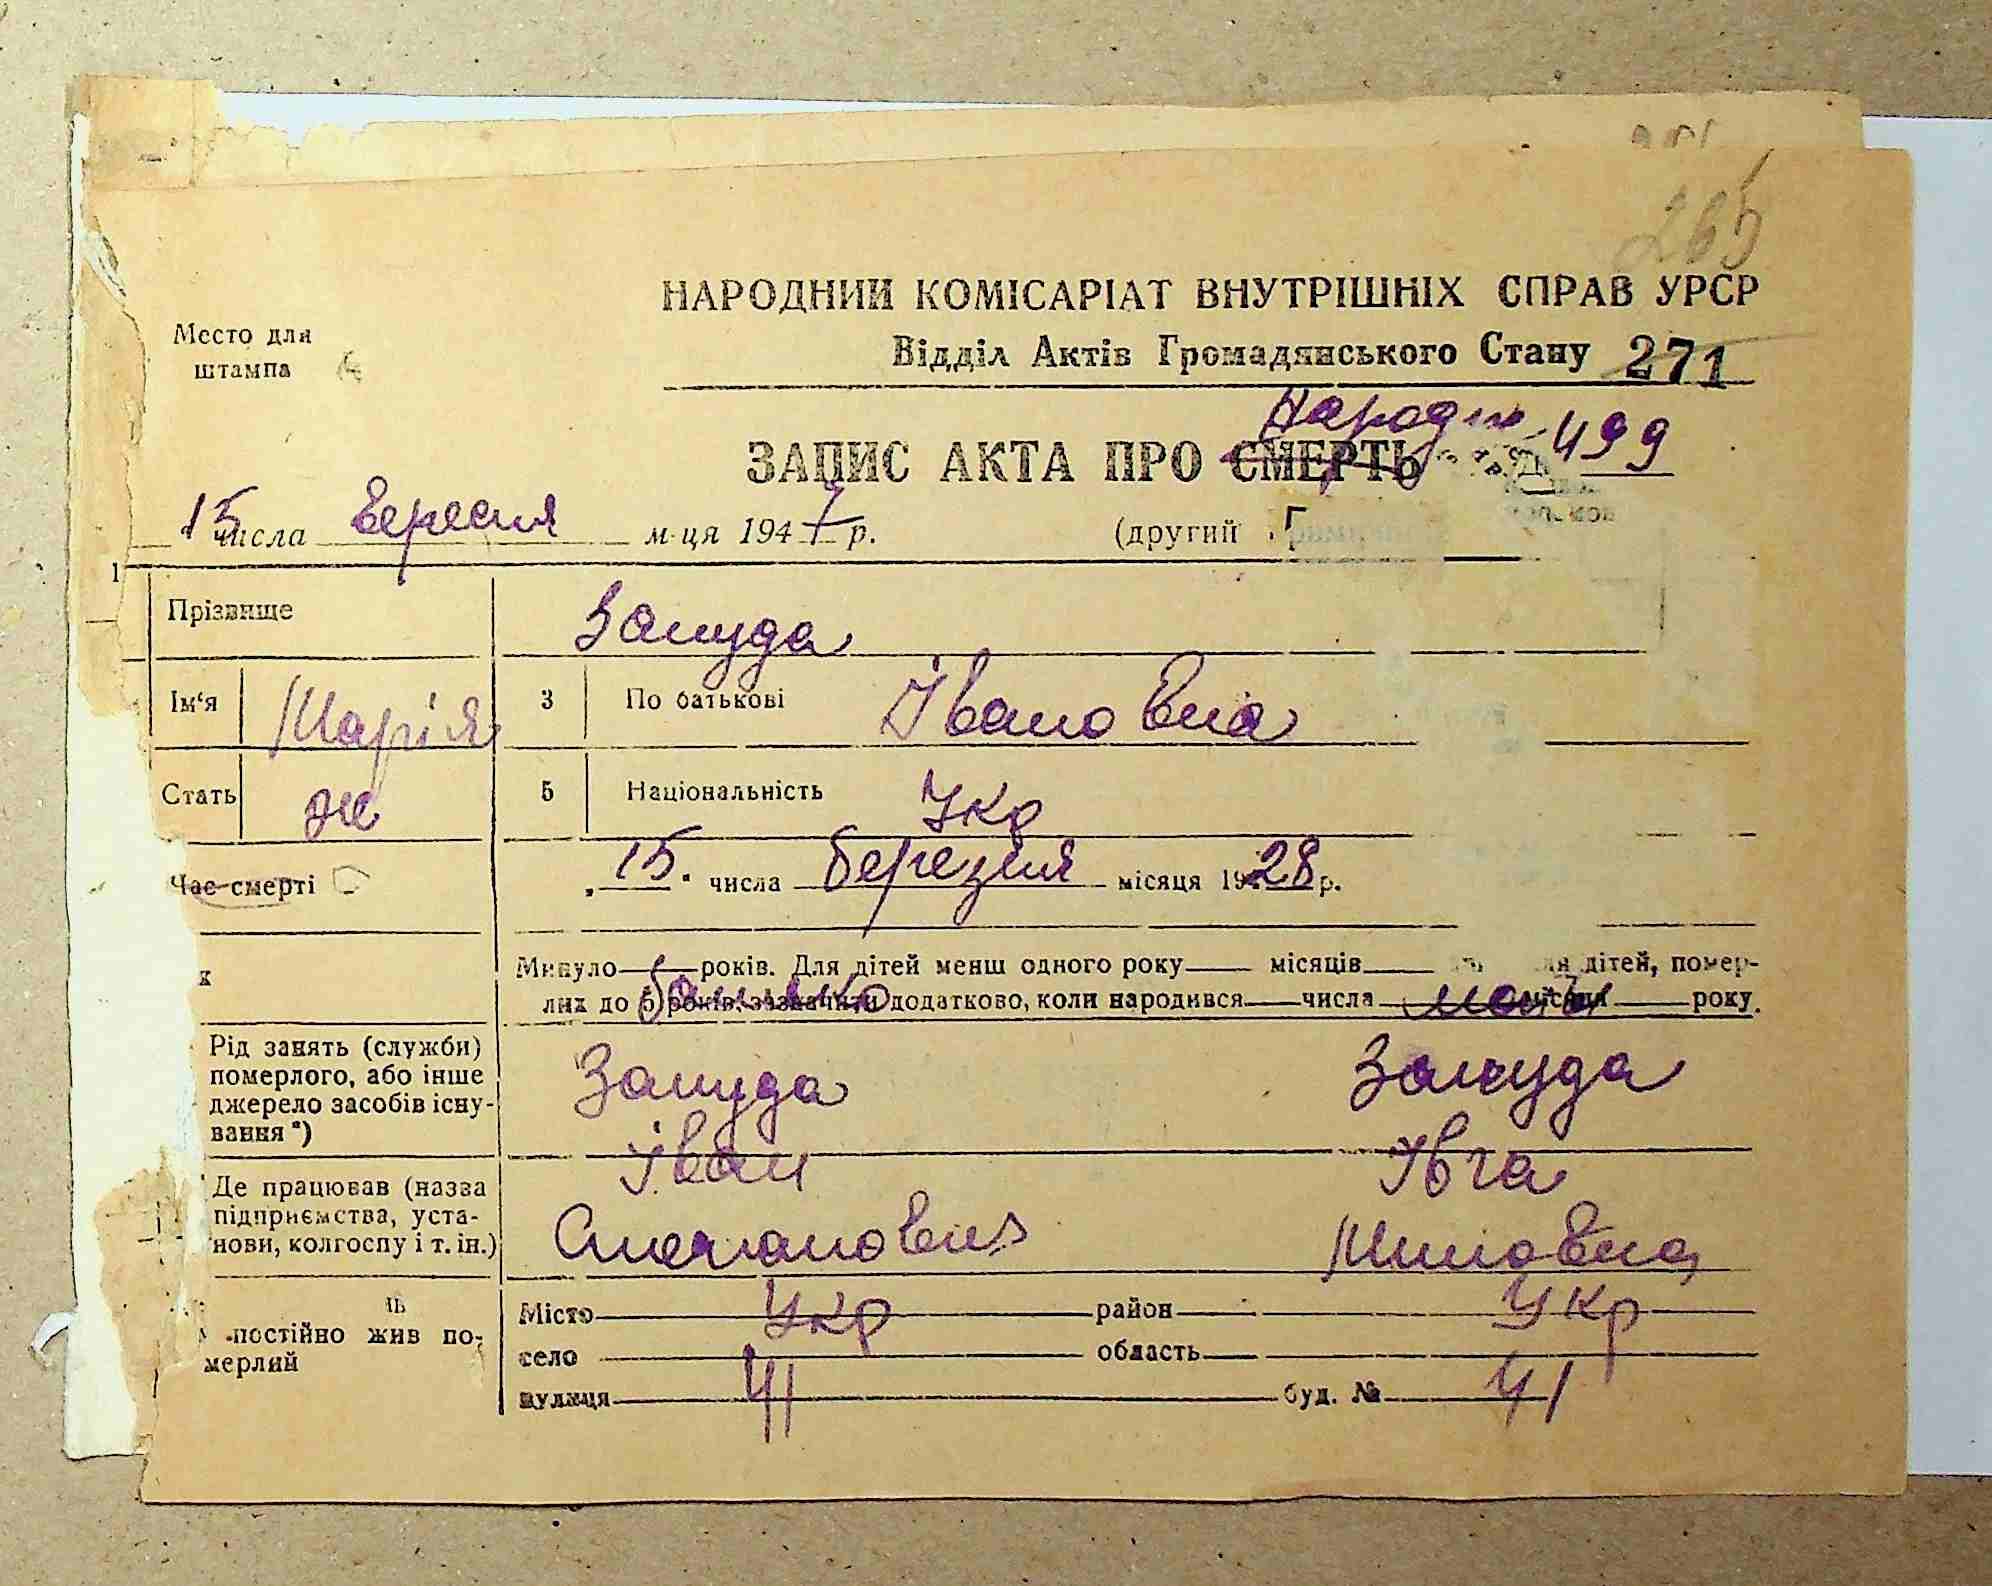 265
НАРОДНИЙ КОМІСАРІАТ ВНУТРІШНІХ СПРАВ УРСР
Место для штампа
Відділ Актів Громадянського Стану 271
Народж
ЗАПИС АКТА ПРО СМЕРТЬ 499
15 числа вересня м-ця 1947 р. (другий
Прізвище Замуда
Ім‘я Марія 3 По батькові Івановна
Стать ж 5 Національність Укр
Час смерті „15“ числа березня місяця 1928 р.
Минуло років. Для дітей менш одного року місяців дітей, помер-
лих до 5 років, зазначити додатково, коли народився числа місяця року.
батько мати
Рід занять (служби) померлого, або інше джерело засобів існу-вання*) Замуда Замуда
Іван Івга
Де працював (назва підприємства, уста-нови, колгоспу і т. ін.) Степанович
Місто Укр район Укр
постійно жив по-мерлий
село область
вулиця 41 буд. № 41